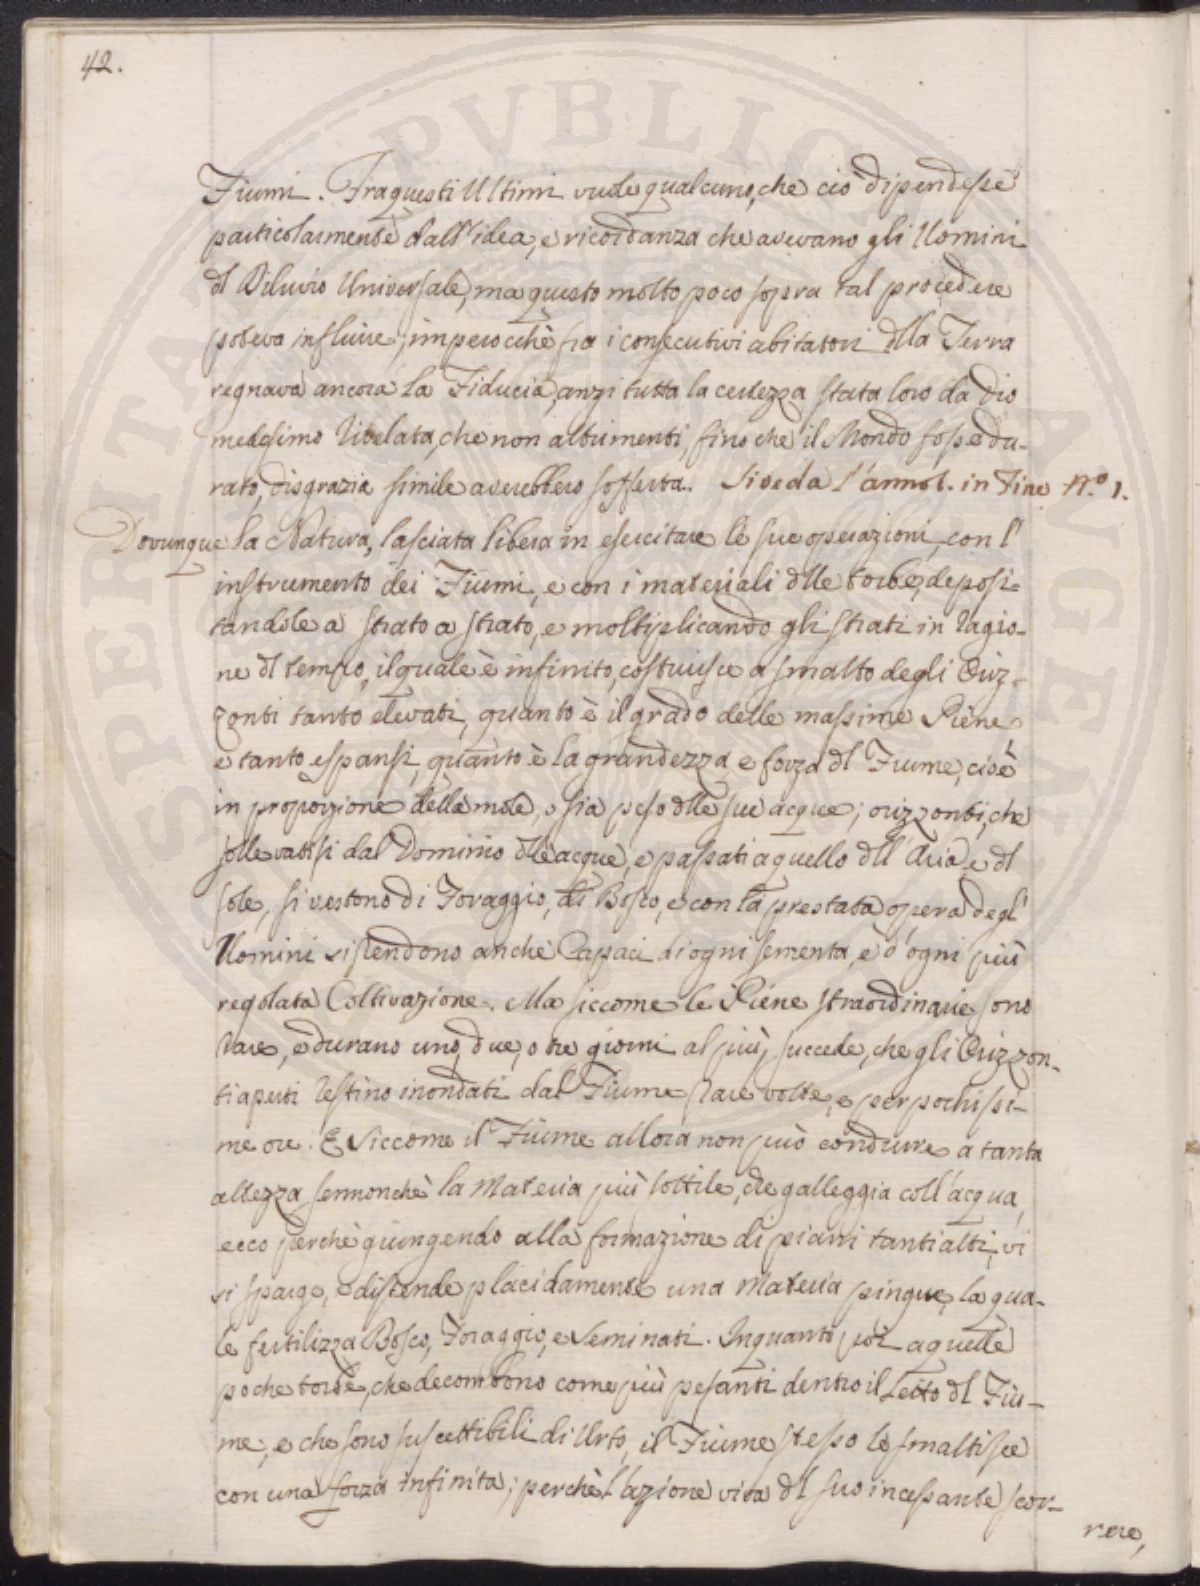 42.
Fiumi. Fra questi Ultimi vude qualcuno, che ciò dipendesse
particolarmente dall'idea, e ricordanza che avevano gli Uomini
dl Diluvio Universale, ma questo molto poco sopra tal procedere
poteva influire; imperocchè fra i consecutivi abitatori dlla Terra
regnava ancora la Fiducia, anzi tutta la certezza stata loro da Dio
medesimo rivelata, che non altrimenti, fino che il Mondo fosse du-
rato, disgrazia simile averebbero sofferta. Si veda l'annot. in Fine N.º 1.
Dovunque la Natura, lasciata libera in esercitare le sue operazioni, con l'
instrumento dei Fiumi, e con i materiali dlle torbe, deposi=
tandole a strato a strato, e moltiplicando gli strati in ragio-
ne dl tempo, il quale è infinito, costruisce a smalto degli Oriz-
zonti tanto elevati, quanto è il grado delle massime Piene,
e tanto espansi, quanto è la grandezza, e forza dl Fiume, cioè
in proporzione della mole, o sia peso dlle sue acque; orizzonti, che
sollevatisi dal Dominio dlle acque, e passati a quello dll'Aria, e dl
sole, si vestono di Foraggio, di Bosco, e con la prestata opera degl'
Uomini si rendono anche Capaci di ogni sementa, e d'ogni più
regolata Coltivazione. Ma siccome le Piene straordinarie sono
rare, e durano uno, due, o tre giorni al più, succede, che gli Orizzon-
ti aperti restino inondati dal Fiume rare volte, e per pochissi-
me ore. E siccome il Fiume allora non può condurre a tanta
altezza sennonchè la Materia più sottile, che galleggia coll'acqua,
ecco perchè giungendo alla formazione di piani tanti alti, vi
si sparge, e distende placidamente una Materia pingue, la qua-
le fertilizza Bosco, Foraggio, e Seminati. Inquanto poi a quelle
poche torbe, che decombono come più pesanti dentro il Letto dl Fiu-
me, e che sono suscettibili di Urto, il Fiume stesso le smaltisce
con una forza infinita; perchè l'azione viva dl suo incessante scor-
rere,
SPERITAT PVBLIC AVGEN